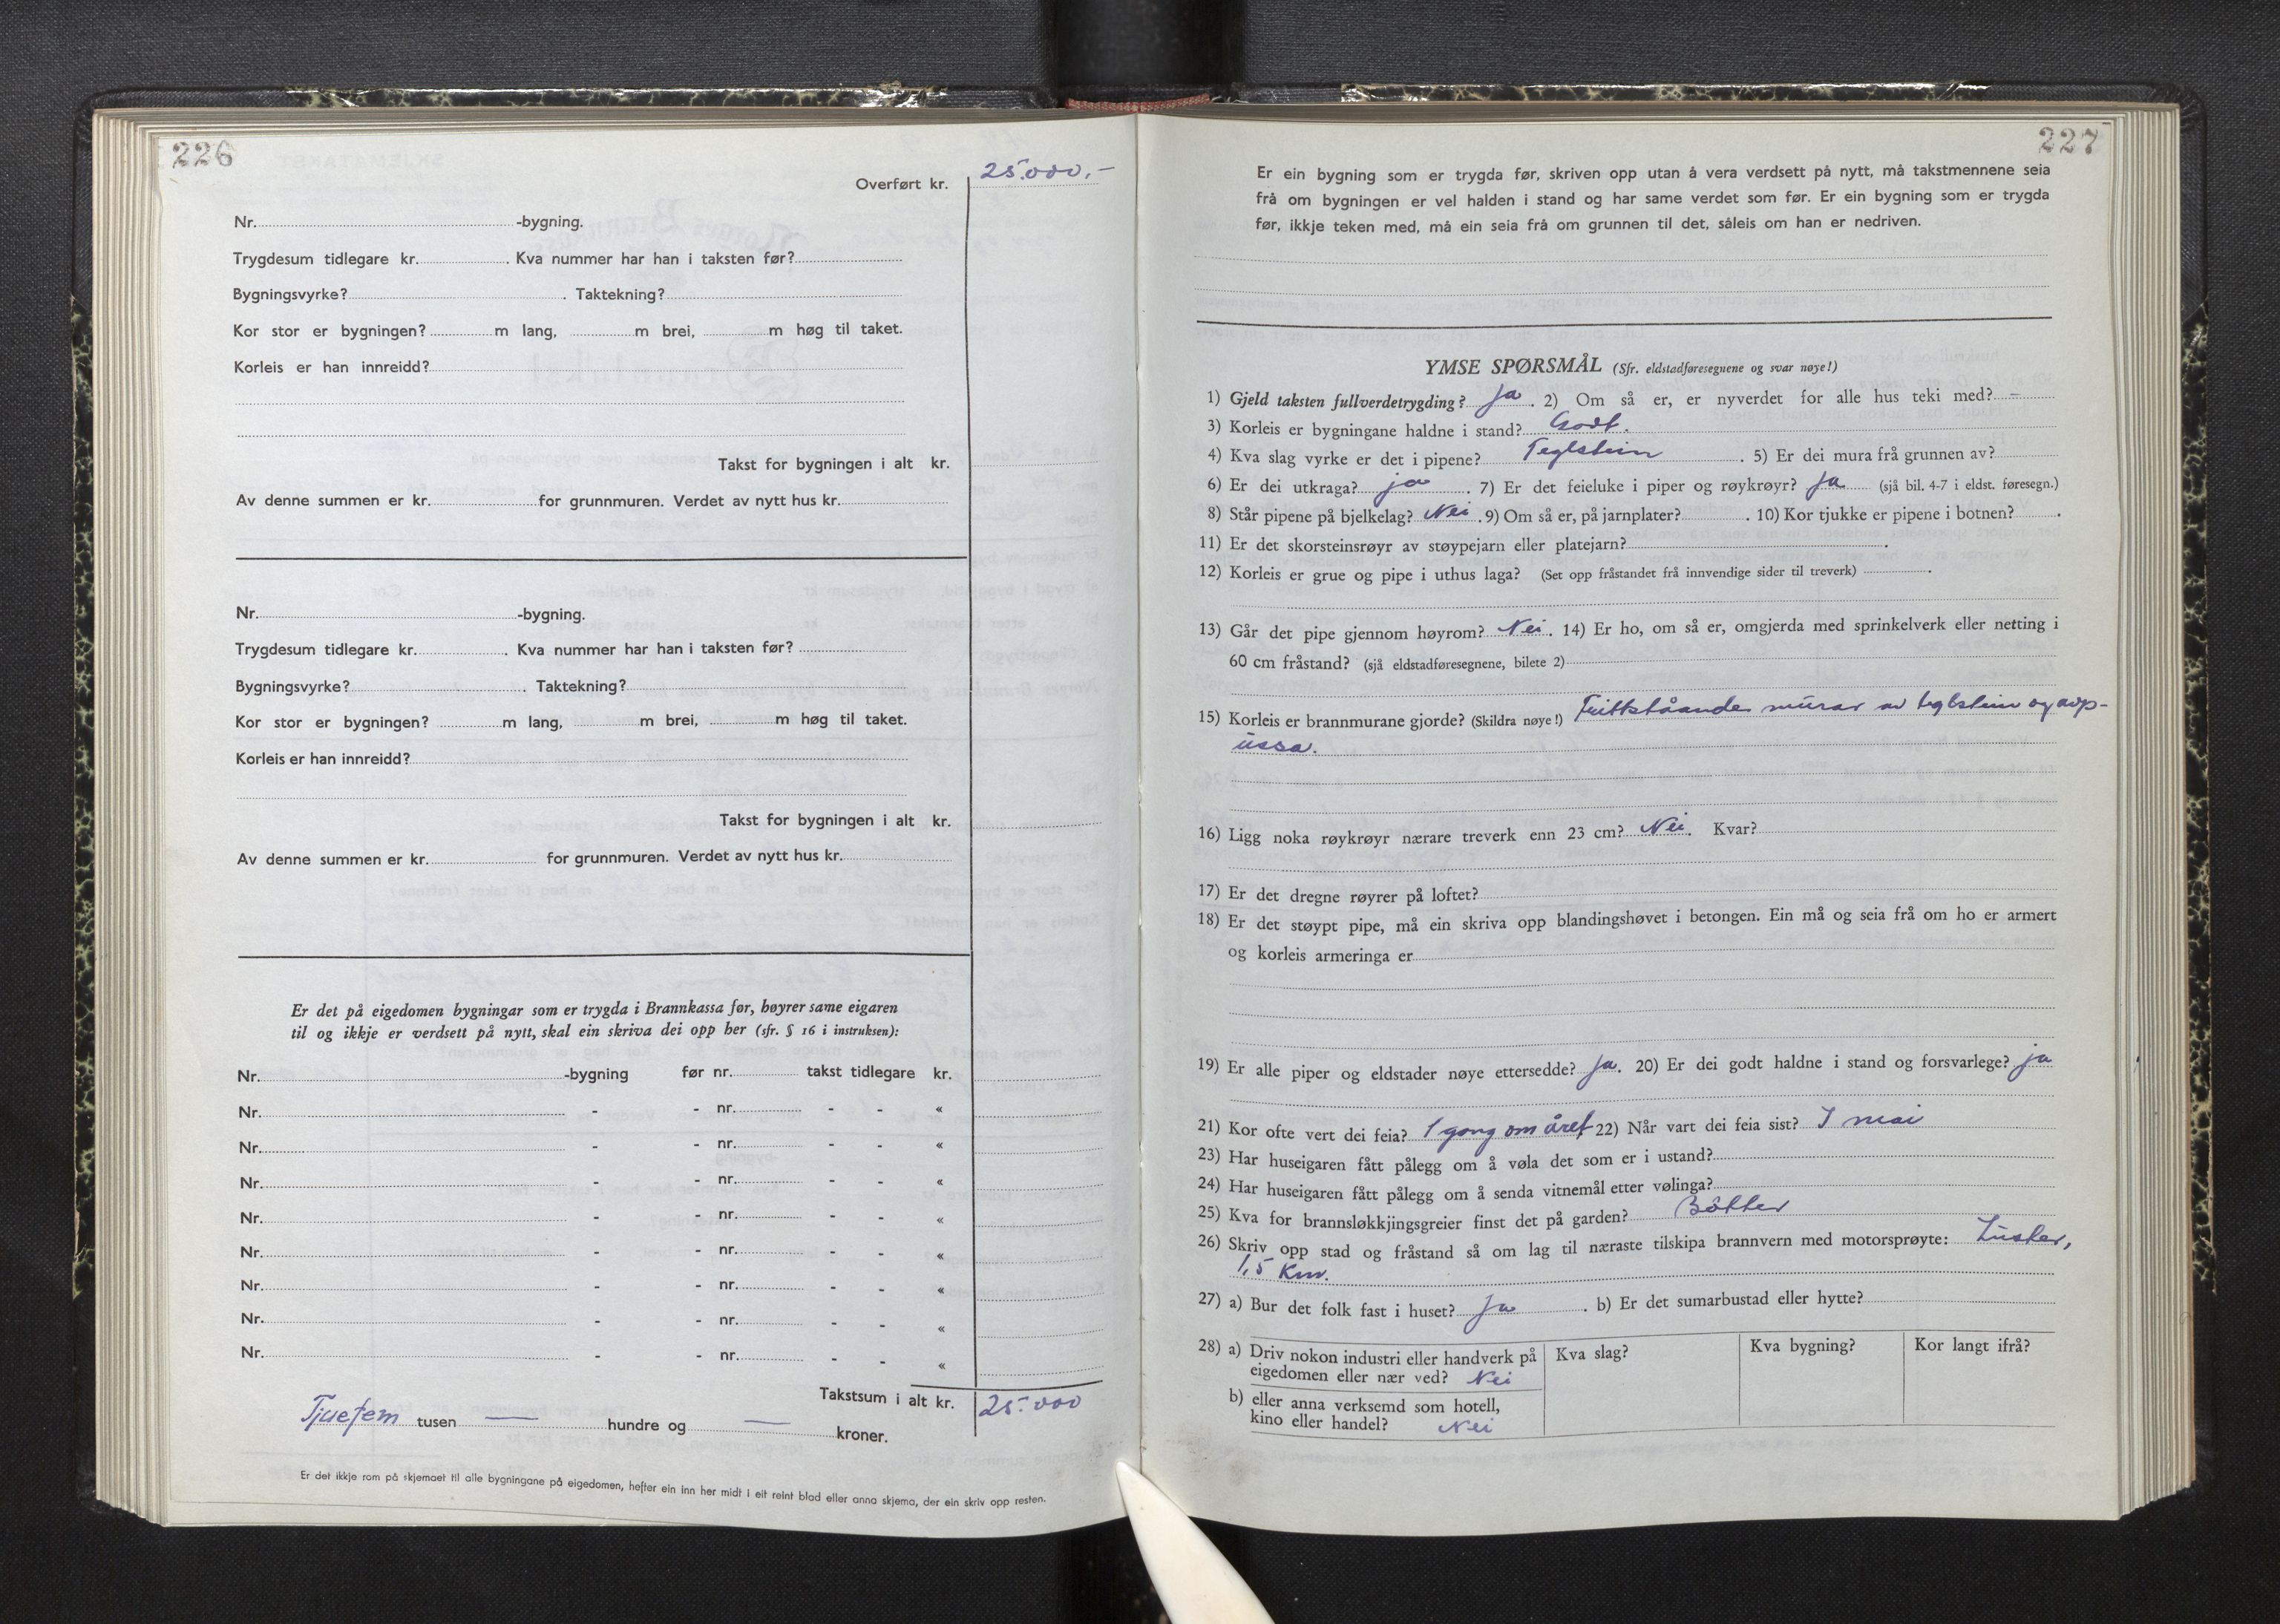 226
Overført kr. 25.000,-
Nr. -bygning.
Trygdesum tidlegare kr. . Kva nummer har han i taksten før?
Bygningsvyrke? . Taktekning?
Kor stor er bygningen? m lang, m brei, m høg til taket.
Korleis er han innreidd?
Takst for bygningen i alt kr.
Av denne summen er kr. for grunnmuren. Verdet av nytt hus kr.
Nr. -bygning.
Trygdesum tidlegare kr. . Kva nummer har han i taksten før?
Bygningsvyrke? . Taktekning?
Kor stor er bygningen? m lang, m brei, m høg til taket.
Korleis er han innreidd?
Takst for bygningen i alt kr.
Av denne summen er kr. for grunnmuren. Verdet av nytt hus kr.
Er det på eigedomen bygningar som er trygda i Brannkassa før, høyrer same eigaren
til og ikkje er verdsett på nytt, skal ein skriva dei opp her (sfr. § 16 i instruksen):
Nr. -bygning før nr. takst tidlegare kr.
Nr. - - nr. - - «
Nr. - - nr. - - «
Nr. - - nr. - - «
Nr. - - nr. - - «
Nr. - - nr. - - «
Nr. - - nr. - - «
Nr. - - nr. - - «
Nr. - - nr. - - «
Takstsum i alt kr. 25.000
Tjuefem tusen — hundre og — kroner.
Er det ikkje rom på skjemaet til alle bygningane på eigedomen, hefter ein inn her midt i eit reint blad eller anna skjema, der ein skriv opp resten.
227
Er ein bygning som er trygda før, skriven opp utan å vera verdsett på nytt, må takstmennene seia
frå om bygningen er vel halden i stand og har same verdet som før. Er ein bygning som er trygda
før, ikkje teken med, må ein seia frå om grunnen til det, såleis om han er nedriven.
YMSE SPØRSMÅL (Sfr. eldstadføresegnene og svar nøye!)
1) Gjeld taksten fullverdetrygding? Ja . 2) Om så er, er nyverdet for alle hus teki med? -
3) Korleis er bygningane haldne i stand? Godt.
4) Kva slag vyrke er det i pipene? Teglstein . 5) Er dei mura frå grunnen av?
6) Er dei utkraga? ja . 7) Er det feieluke i piper og røykrøyr? Ja (sjå bil. 4-7 i eldst. føresegn.)
8) Står pipene på bjelkelag? Nei . 9) Om så er, på jarnplater? . 10) Kor tjukke er pipene i botnen? .
11) Er det skorsteinsrøyr av støypejarn eller platejarn? .
12) Korleis er grue og pipe i uthus laga? (Set opp fråstandet frå innvendige sider til treverk) .
13) Går det pipe gjennom høyrom? Nei . 14) Er ho, om så er, omgjerda med sprinkelverk eller netting i
60 cm fråstand? (sjå eldstadføresegnene, bilete 2)
15) Korleis er brannmurane gjorde? (Skildra nøye!) Frittståande murar av teglstein og avp-
ussa.
16) Ligg noka røykrøyr nærare treverk enn 23 cm? Nei. Kvar?
17) Er det dregne røyrer på loftet?
18) Er det støypt pipe, må ein skriva opp blandingshøvet i betongen. Ein må og seia frå om ho er armert
og korleis armeringa er
19) Er alle piper og eldstader nøye ettersedde? Ja. 20) Er dei godt haldne i stand og forsvarlege? ja
21) Kor ofte vert dei feia? 1 gong om året 22) Når vart dei feia sist? I mai
23) Har huseigaren fått pålegg om å vøla det som er i ustand?
24) Har huseigaren fått pålegg om å senda vitnemål etter vølinga?
25) Kva for brannsløkkjingsgreier finst det på garden? Bøtter
26) Skriv opp stad og fråstand så om lag til næraste tilskipa brannvern med motorsprøyte: Luster,
1,5 Km.
27) a) Bur det folk fast i huset? Ja . b) Er det sumarbustad eller hytte?
28) a) Driv nokon industri eller handverk på Kva slag? Kva bygning? Kor langt ifrå?
eigedomen eller nær ved? Nei
b) eller anna verksemd som hotell,
kino eller handel? Nei